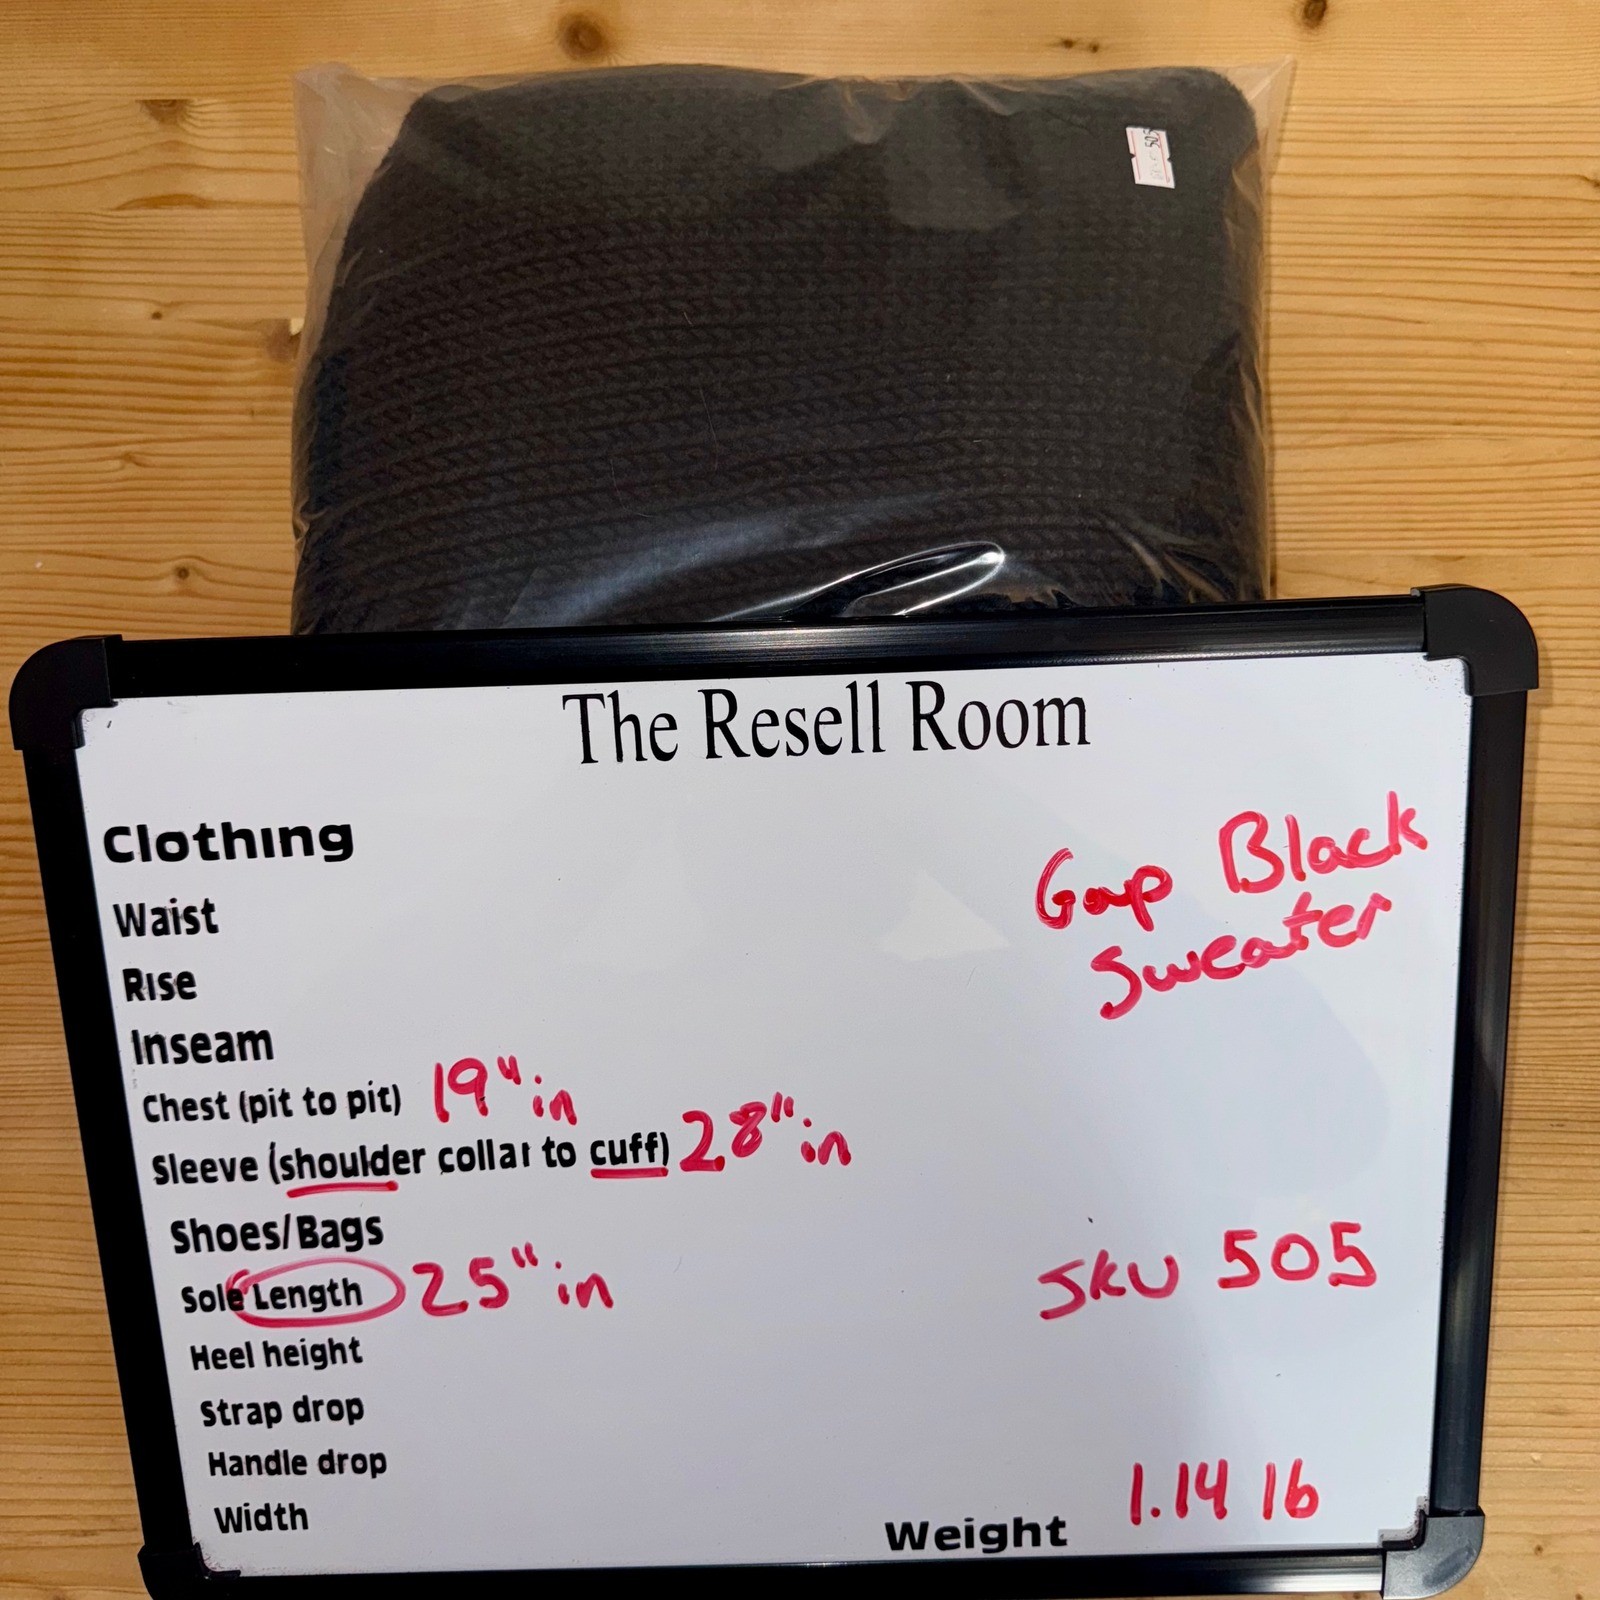 505
The Resell Room
Clothing
Gap Black
Sweater
Waist
Rise
Inseam
Chest (pit to pit) 19" in
Sleeve (shoulder collar to cuff) 28" in
Shoes/Bags
Sole Length 25" in
SKU 505
Heel height
Strap drop
Handle drop
Width
Weight 1.14 lb